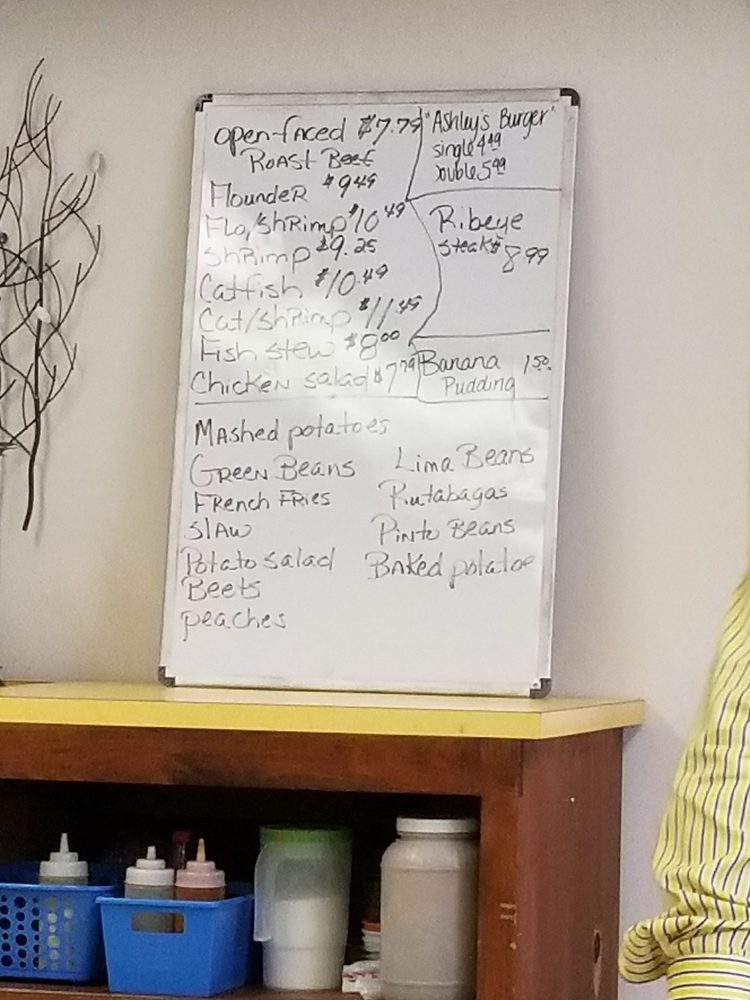 open-faced $7.79
Roast Beef
Flounder $9.49
Flo/Shrimp $10.49
Shrimp $9.25
Catfish $10.49
Cat/Shrimp $11.49
Fish stew $8.00
Chicken salad $7.79
"Ashley's Burger"
single 4.49
Double 5.99
Ribeye
Steak $8.99
Banana 1.50
Pudding
Mashed potatoes
Green Beans
French Fries
Slaw
Potato Salad
Beets
peaches
Lima Beans
Rutabagas
Pinto Beans
Baked potatoe